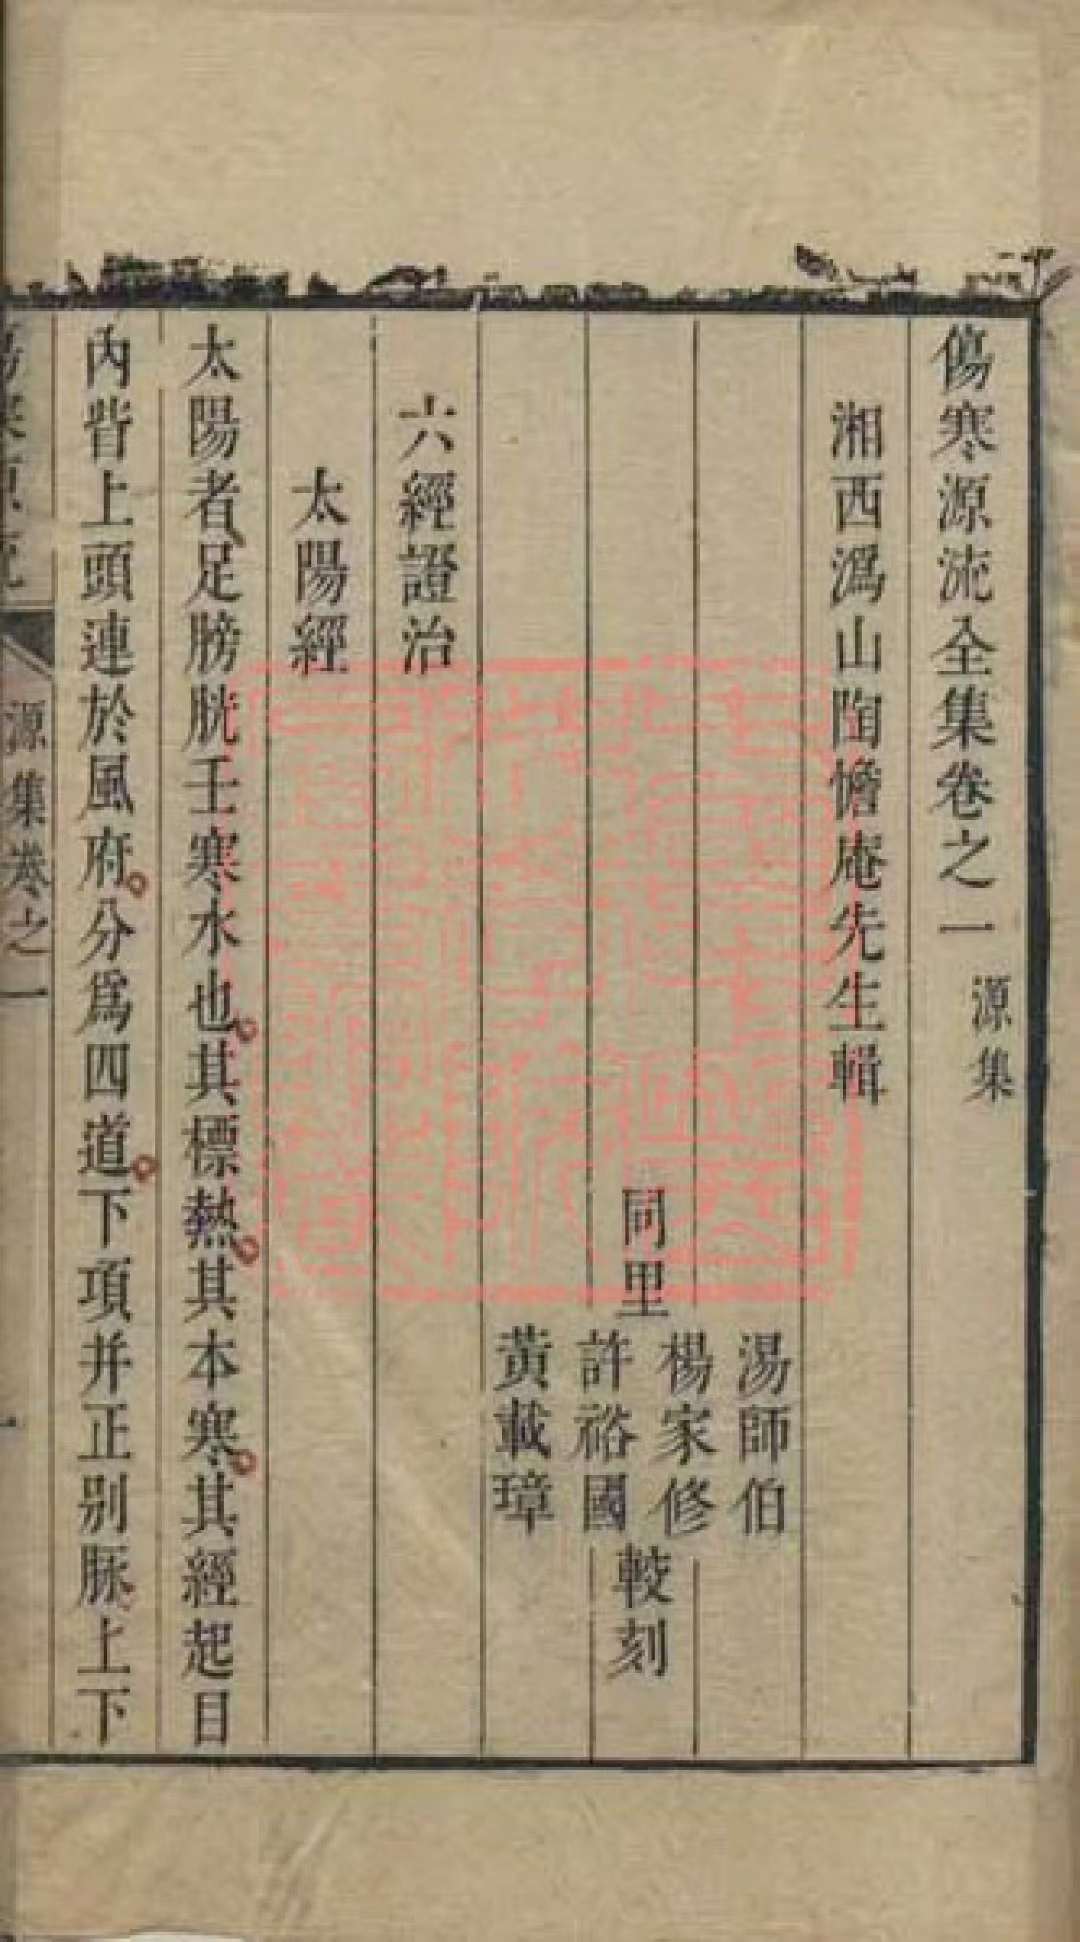 傷寒源流全集卷之一 源集
湘西潙山陶憺庵先生輯
湯師伯
楊家修
同里
許裕國
黃載璋
較刻
六經證治
太陽經
太陽者足膀胱壬寒水也其標熱其本寒其經起目
內眥上頭連於風府分爲四道下項并正别脈上下
源集卷之一